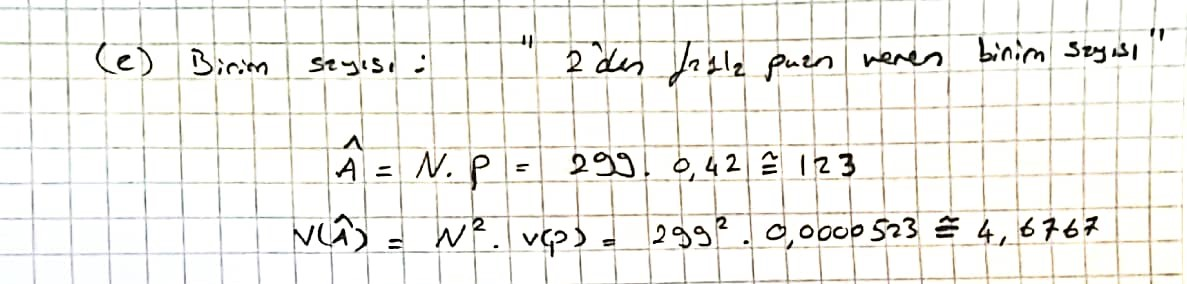 (e) Birim sayısı : "2'den fazla puan veren birim sayısı"
Â = N. p = 299. 0,42 ≅ 123
V(Â) = N². v(p) = 299². 0,0000523 ≅ 4,6767